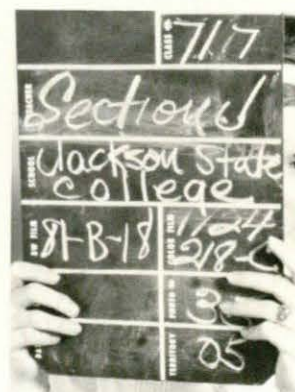 CLASS 717
TEACHER Section J
SCHOOL Jackson State
College
BW FILM 81-B-18
COLOR FILM 1124
218-C
PHOTO 3
TERRITORY 05